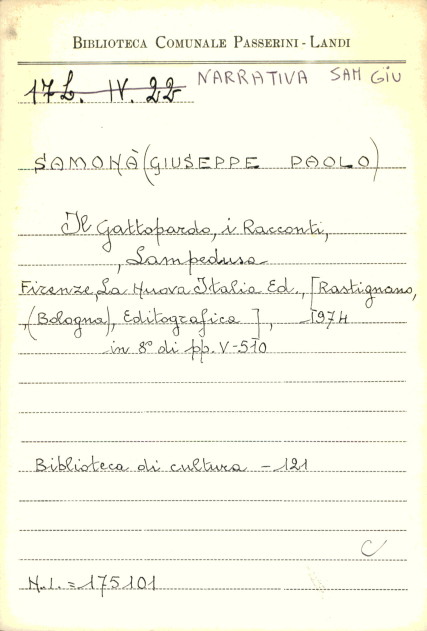 BIBLIOTECA COMUNALE PASSERINI - LANDI
17 L. IV. 22 NARRATIVA SAM GIU
SAMONÀ (GIUSEPPE PAOLO)
Il Gattopardo, i Racconti,
, Lampedusa
Firenze, La Nuova Italia Ed., [Rastignano,
, (Bologna), Editografica], 1974
in 8° di pp. V-510
Biblioteca di cultura - 121
C
N.I. = 175101